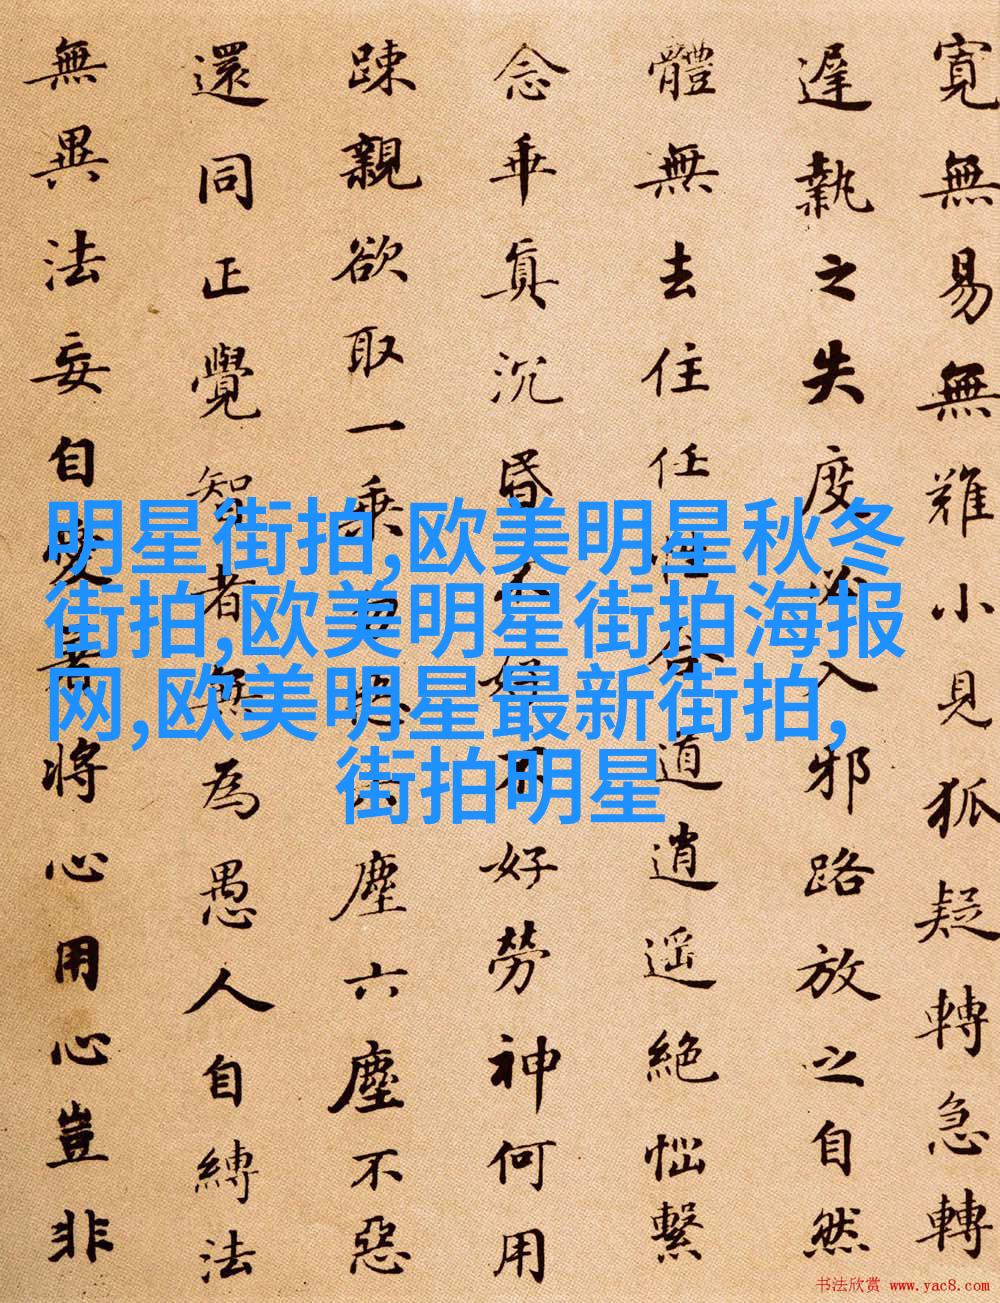 寛無易無難小見狐疑轉急轉
遲執之失度必入邪路放之自然
體無去住任性合道逍遥絶惱繫
念乖真沉昏不好不好勞神何用
踈親欲取一乘勿惡六塵六塵不惡
還同正覺智者無為愚人自縛法
無異法妄自愛著將心用心豈非
明星街拍,欧美明星秋冬
街拍,欧美明星街拍海报
网,欧美明星最新街拍,
街拍明星
书法欣赏 www.yac8.com